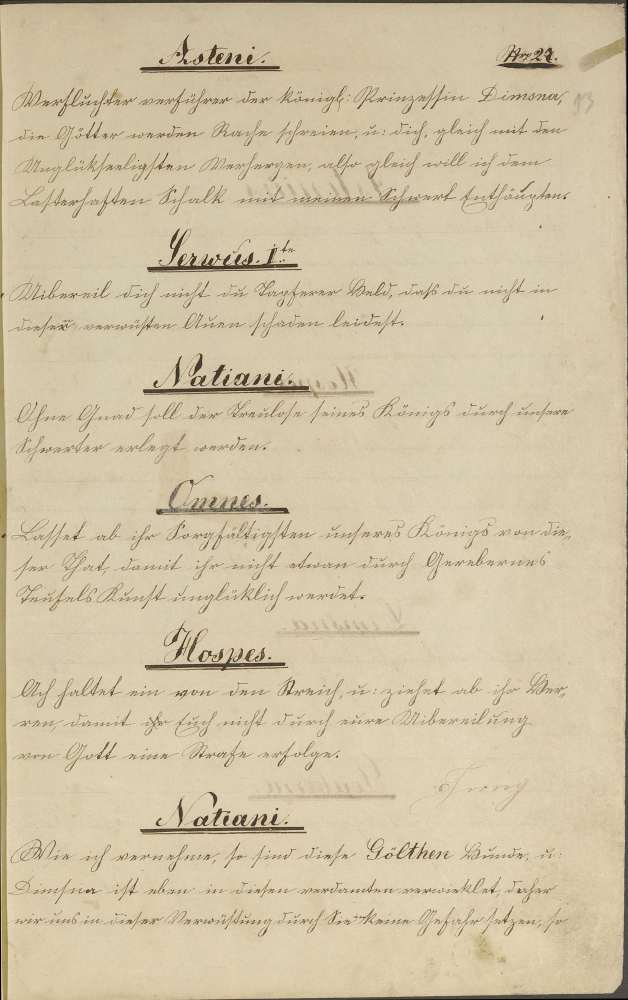 Asteni.
Nro 27.
13
Verfluchter verführer der königl: Prinzessin Dimsna,
die Götter werden Rache schreien, u: dich, gleich mit den
Unglükseeligsten Verhergen, also gleich will ich dem
Lasterhaften Schalk mit meinen Schwert Enthäupten.
Serwus. I.te
Uibereil dich nicht du Tapferer Held, daß du nicht in
dieser verwüsten Auen schaden leidest.
Natiani.
Ohne Gnad soll der Treulose seines Königs durch unsere
Schwerter erlegt werden.
Omnes.
Lasset ab ihr Sorgfältigsten unseres Königs von die,
ser That, damit ihr nicht etwan durch Gerebernus
Teufels Kunst unglüklich werdet.
Hospes.
Ach haltet ein von den Streich, u: ziehet ab ihr Her,
ren, damit ihr Euch nicht durch eure Uibereilung
von Gott eine Strafe erfolge.
Natiani.
Wie ich vernehme, so sind diese Gölthen Hunde, u:
Dimsna ist eben in diesen verdamten verwiklet, daher
wir uns in dieser Verwüstung durch Sie keine Gefahr setzen, so